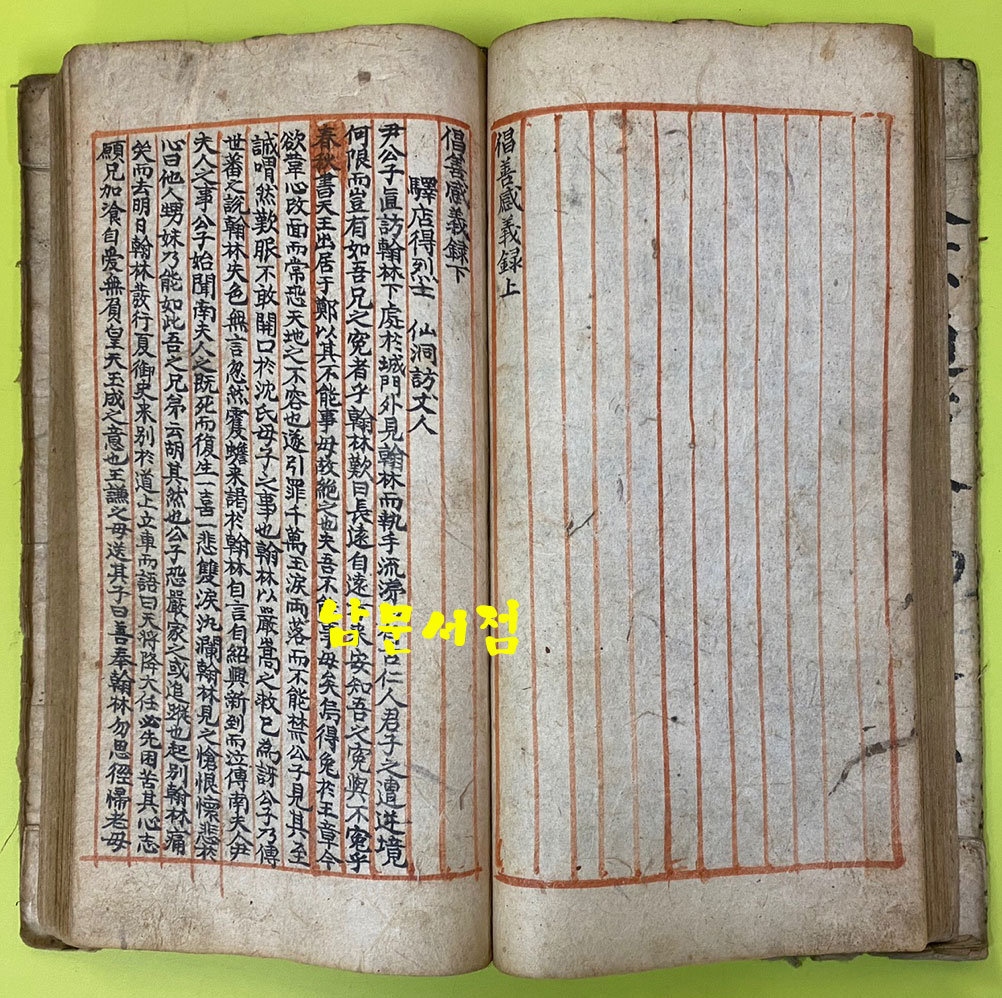 倡善感義録上
倡善感義録下
驛店得烈士 仙洞訪丈人
尹公子直訪翰林下處於城門外見翰林而執手流涕曰古仁人君子之遭逆境
何限而豈有如吾兄之寃者乎翰林歎曰長遠自遠安知吾之寃與不寃乎
春秋書天王出居于鄭以其不能事母故絶之也夫吾不能事母矣焉得免於王章今
欲革心改面而常恐天地之不容也遂引罪千萬玉淚雨落而不能禁公子見其至
誠喟然歎服不敢開口於沈氏母子之事也翰林以嚴嵩之救已爲訝公子乃傳
世蕃之說翰林失色無言忽然蟾來謁於翰林自言自紹興新到而泣傳南夫人尹
夫人之事公子始聞南夫人之既死而復生一喜一悲雙淚汍瀾翰林見之愴恨懷悲於
心曰他人甥妹乃能如此吾之兄弟云胡其然也公子恐嚴家之或追蹤也起別翰林痛
矣而去明日翰林發行夏御史来別於道上立車而語曰天將降大任必先困苦其心志
願兄加湌自愛無負皇天玉成之意也王謙之母送其子曰善奉翰林勿思徑帰老母
남문서점